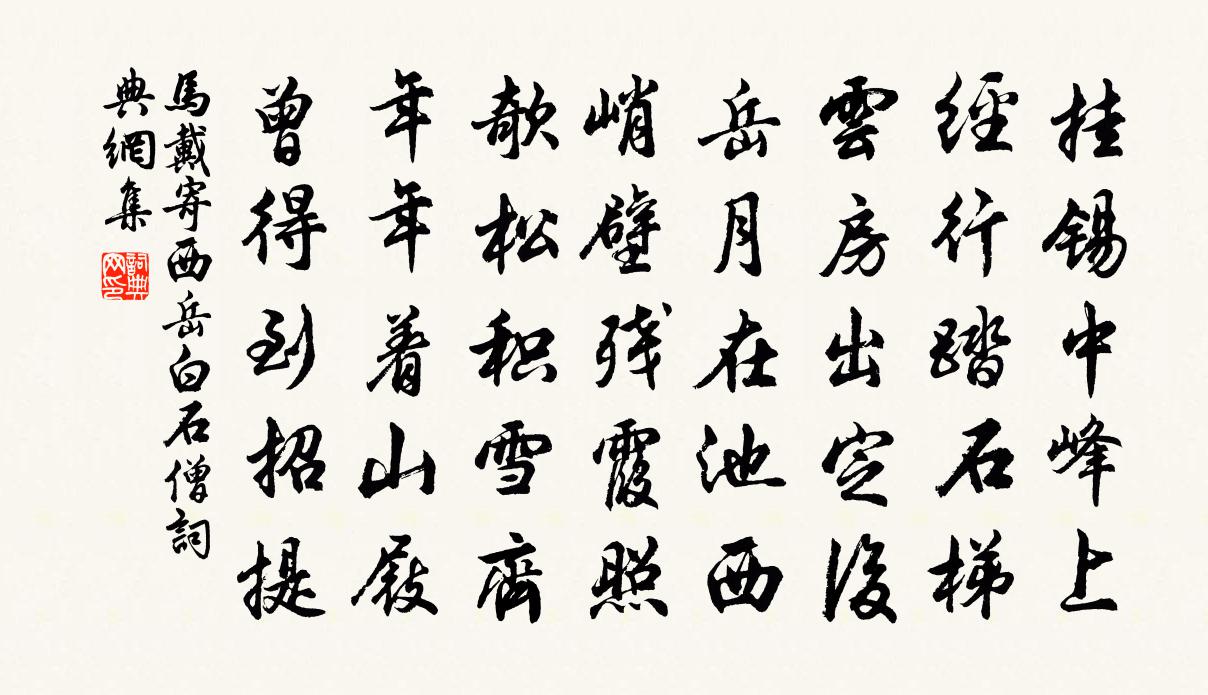 挂錫中峰上
經行踏石梯
雲房出定後
岳月在池西
峭壁残霞照
欹松积雪齊
年年着山屐
曾得到招提
馬戴寄西岳白石僧詞
典網集
詞典
网印